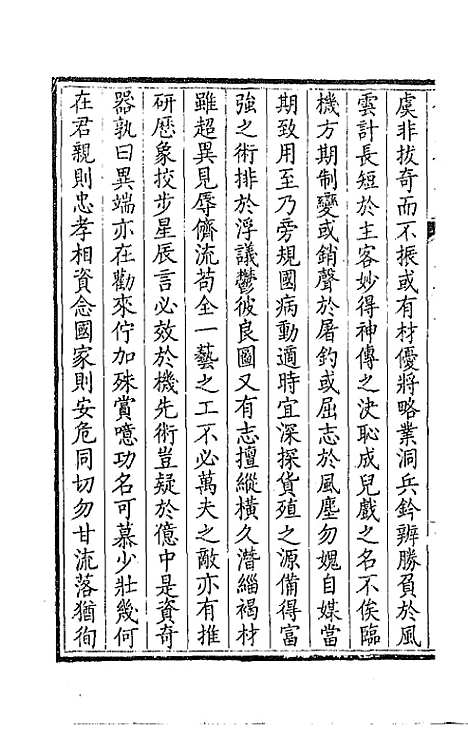 虞非拔奇而不振或有材優將略業洞兵鈐辨勝負於風
雲計長短於主客妙得神傳之決恥成兒戲之名不俟臨
機方期制變或銷聲於屠釣或屈志於風塵勿媿自媒當
期致用至乃旁規國病動適時宜深探貨殖之源備得富
強之術排於浮議鬱彼良圖又有志擅縱橫久潛緇褐材
雖超異見辱儕流苟全一藝之工不必萬夫之敵亦有推
研歷象挍步星辰言必效於機先術豈疑於億中是資奇
器孰曰異端亦在勸來佇加殊賞噫功名可慕少壯幾何
在君親則忠孝相資念國家則安危同切勿甘流落猶徇